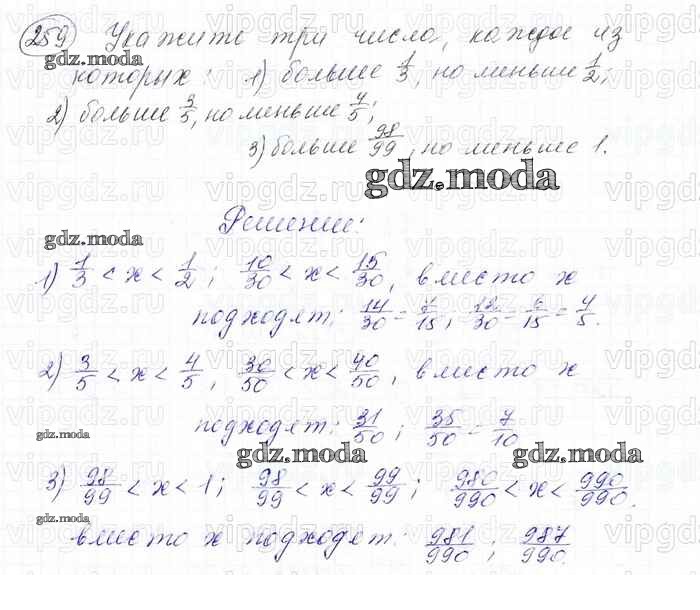 259 Укажите три числа, каждое из
которых: 1) больше 1/3, но меньше 1/2;
2) больше 3/5, но меньше 4/5;
3) больше 98/99, но меньше 1.
gdz.moda
gdz.moda
Решение:
gdz.moda
1) 1/3 < x < 1/2; 10/30 < x < 15/30, вместо x
подходят: 14/30 = 7/15; 12/30 = 6/15 = 4/5.
2) 3/5 < x < 4/5, 30/50 < x < 40/50, вместо x
подходят: 31/50; 35/50 = 7/10
gdz.moda
gdz.moda
gdz.moda
3) 98/99 < x < 1; 98/99 < x < 99/99; 980/990 < x < 990/990.
gdz.moda
вместо x подходят: 981/990; 987/990.